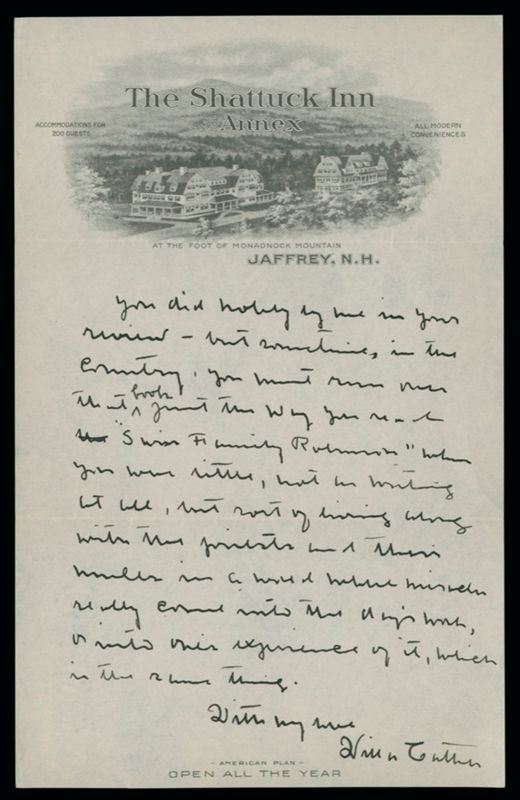 The Shattuck Inn
Annex
ACCOMMODATIONS FOR
200 GUESTS
ALL MODERN
CONVENIENCES
AT THE FOOT OF MONADNOCK MOUNTAIN
JAFFREY, N.H.
You did nobly by me in your
review – but sometime, in the
Country, you must run over
that book just the way you read
the "Swiss Family Robinson" when
you were little, not as writing
at all, but sort of living along
with the priests and their
mules in a world where miracles
really come into the day's work,
or into one's experience of it, which
is the same thing.
With my love
Willa Cather
- AMERICAN PLAN -
OPEN ALL THE YEAR